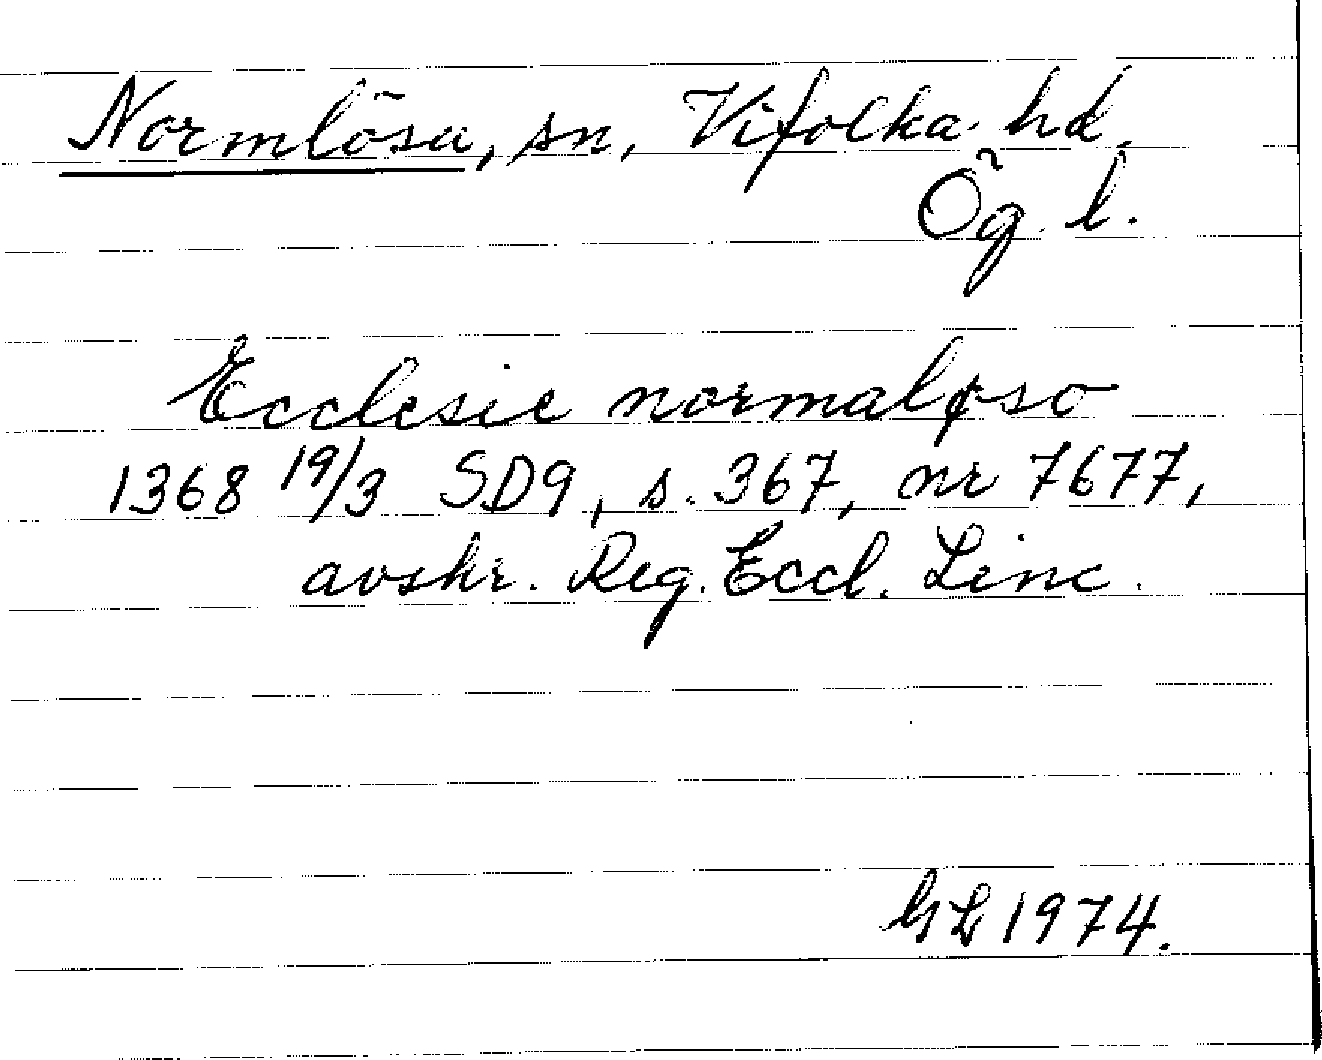 Normlösa, sn, Vifolka hd,
Ög. l.
Ecclesie normaløso
1368 19/3 SD9, s. 367, nr 7677,
avskr. Reg. Eccl. Linc.
GL 1974.